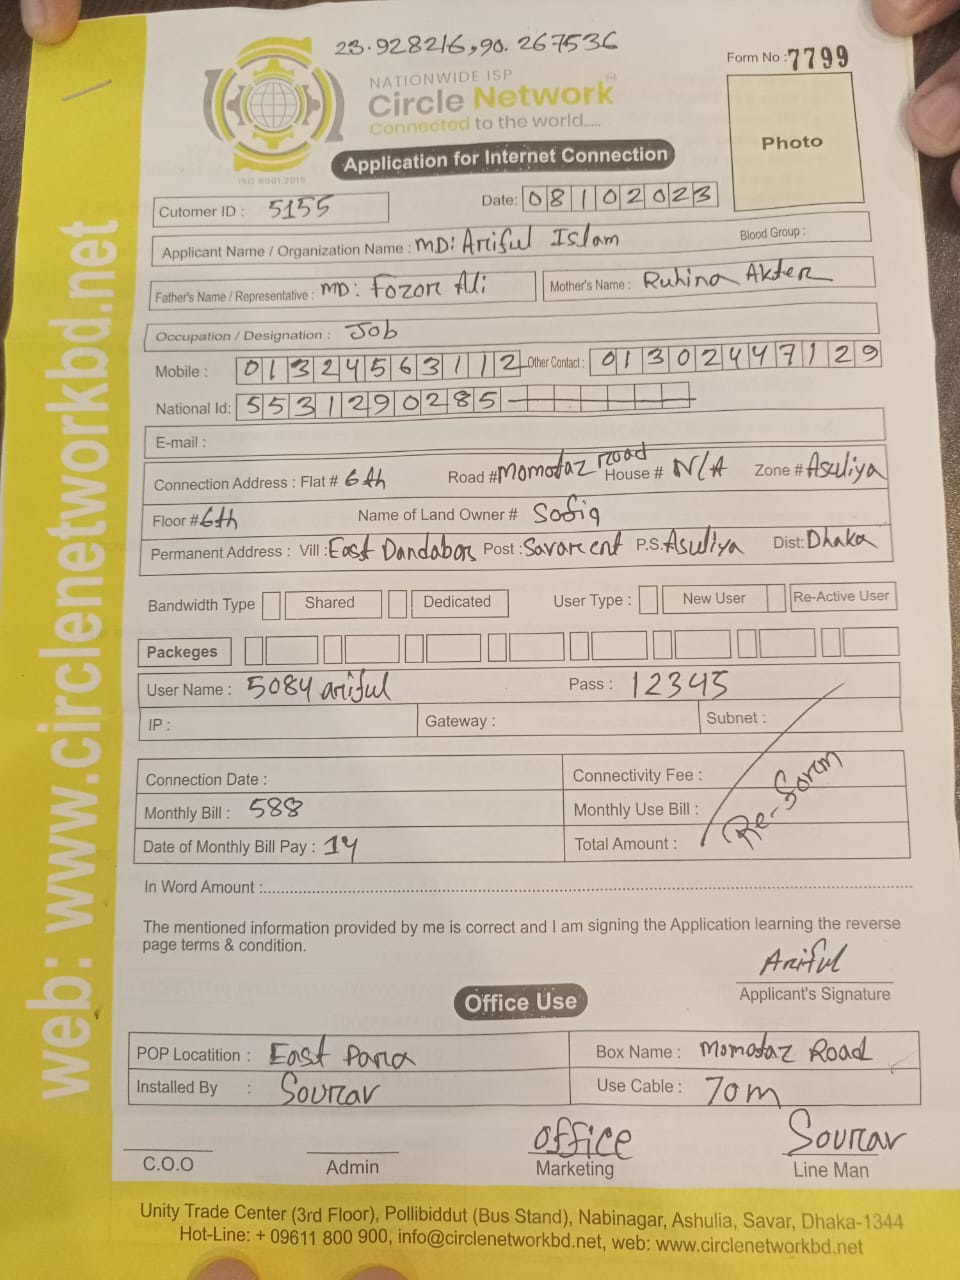 23.928216,90.267536
Form No : 7799
NATIONWIDE ISP
Circle Network
Connected to the world.....
ISO 9001:2015
Photo
Application for Internet Connection
Cutomer ID : 5155
Date: 08102023
Applicant Name / Organization Name : MD: Ariful Islam
Blood Group :
Father's Name / Representative : MD: Fozor Ali
Mother's Name : Ruhina Akter
Occupation / Designation : Job
Mobile : 01324563112 Other Contact : 01302447129
National Id: 5531290285
E-mail :
Connection Address : Flat # 6th Road # Momotaz Road House # N/A Zone # Asuliya
Floor # 6th Name of Land Owner # Sofiq
Permanent Address : Vill : East Dandabor Post : Savar cent P.S. Asuliya Dist: Dhaka
Bandwidth Type Shared Dedicated User Type : New User Re-Active User
Packeges
User Name : 5084 ariful Pass : 12345
IP : Gateway : Subnet :
Connection Date : Connectivity Fee :
Monthly Bill : 588 Monthly Use Bill :
Date of Monthly Bill Pay : 14 Total Amount :
Re-Sorom
In Word Amount :
The mentioned information provided by me is correct and I am signing the Application learning the reverse
page terms & condition.
Ariful
Applicant's Signature
Office Use
POP Locatition : East Para Box Name : Momotaz Road
Installed By : Sourav Use Cable : 70m
office Sourav
C.O.O Admin Marketing Line Man
Unity Trade Center (3rd Floor), Pollibiddut (Bus Stand), Nabinagar, Ashulia, Savar, Dhaka-1344
Hot-Line: + 09611 800 900, info@circlenetworkbd.net, web: www.circlenetworkbd.net
web: www.circlenetworkbd.net